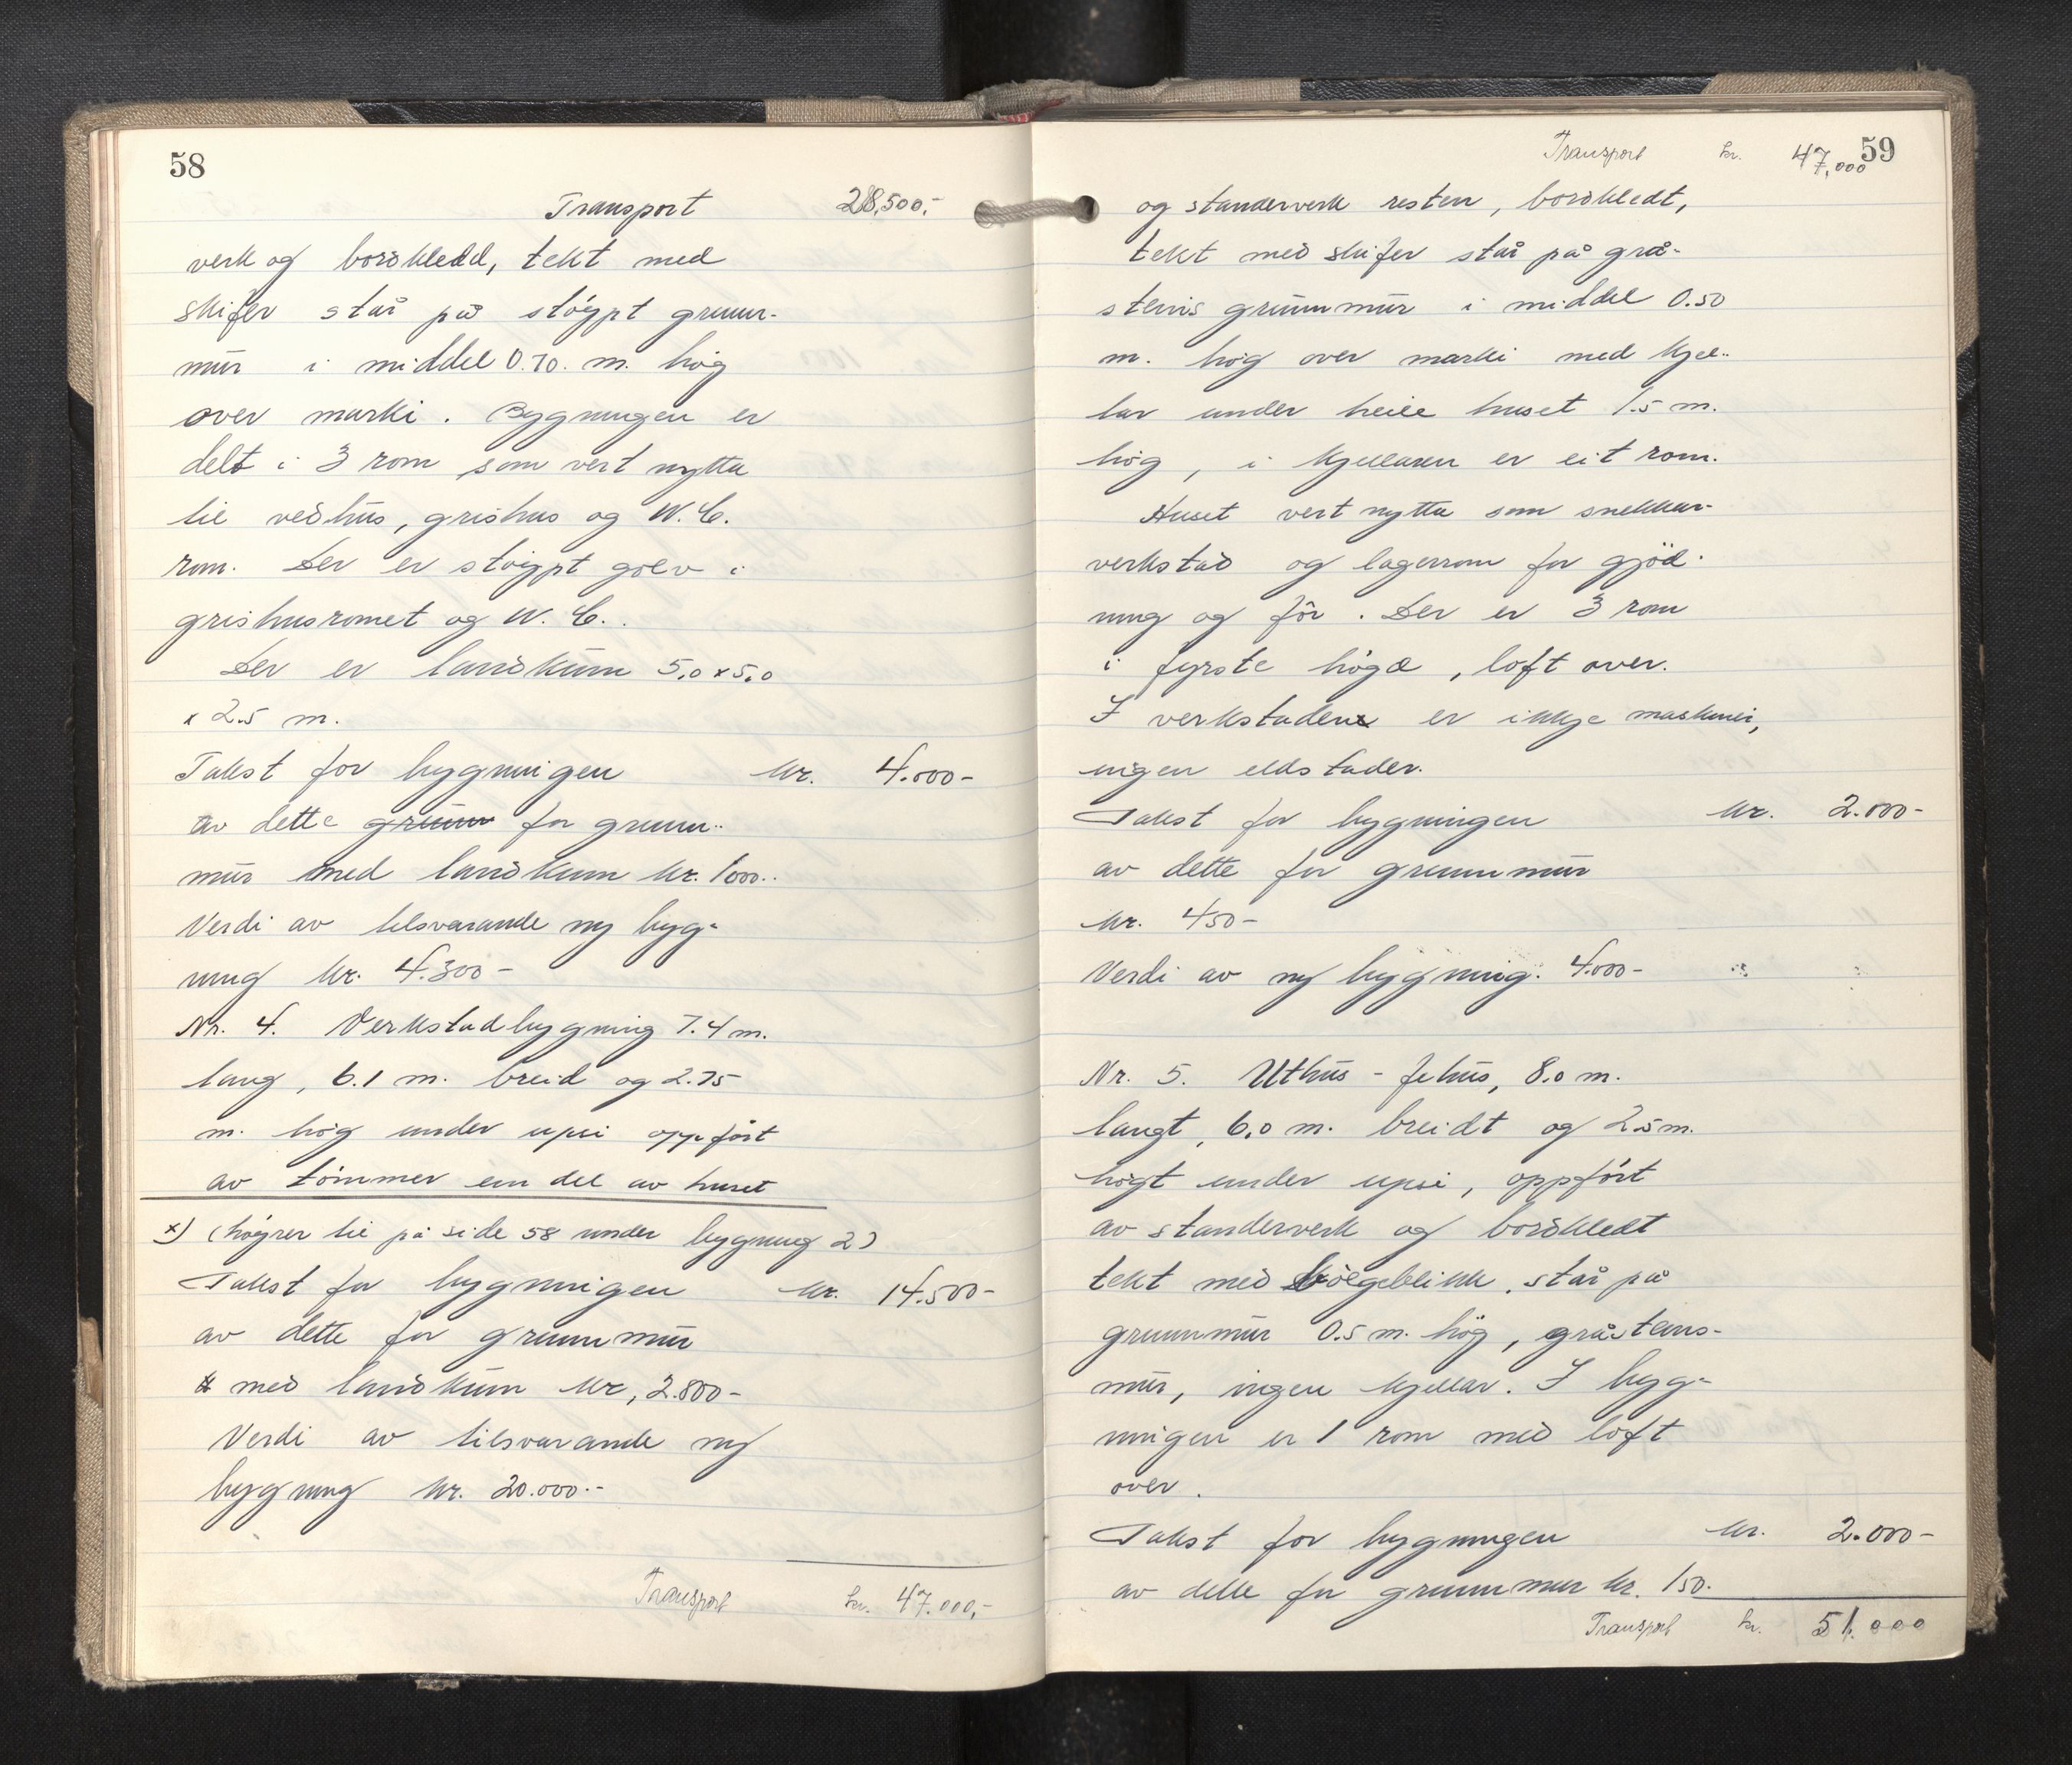 58
Transport 28,500,-
verk og bordkledd, tekt med
skifer står på støypt grunn-
mur i middel 0.70. m. høg
over marki. Bygningen er
delt i 3 rom som vert nytta
til vedhus, grishus og W.C.
rom. Der er støypt golv i
grishusromet og W.C..
Der er landkum 5,0 x 5,0
x 2.5 m.
Takst for bygningen kr. 4.000-
av dette grunn for grunn-
mur med landkum kr. 1000..
Verdi av tilsvarande ny byg-
ning kr. 4.300-
Nr. 4. Verkstadbygning 7.4 m.
lang, 6.1 m. breid og 2.75
m. høg under upsi oppført
av tømmer ein del av huset
x) (høyrer til på side 58 under bygning 2)
Takst for bygningen kr. 14.500-
av dette for grunnmur
med landkum kr, 2.800-
Verdi av tilsvarande ny
bygning kr. 20.000.-
Transport kr. 47.000,-
59
Transport kr. 47,000
og standerverk resten, bordkledt,
tekt med skifer står på grå-
steins grunnmur i middel 0.50
m. høg over marki med kjel-
lar under heile huset 1.5 m.
høg, i kjellaren er eit rom.
Huset vert nytta som snekkar-
verkstad og lagerrom for gjød-
ning og fôr. Der er 3 rom
i fyrste høgd, loft over.
I verkstaden er ikkje maskiner,
ingen eldstader.
Takst for bygningen kr. 2.000-
av dette for grunnmur
kr. 450-
Verdi av ny bygning. 4.000-
Nr. 5. Uthus - fehus, 8.0 m.
langt, 6.0 m. breidt og 2.5 m.
høgt under upsi, oppført
av standerverk og bordkledt
tekt med bølgeblikk, står på
grunnmur 0.5 m. høg, gråsteins-
mur, ingen kjellar. I byg-
ningen er 1 rom med loft
over.
Takst for bygningen kr. 2.000-
av dette for grunnmur kr. 150.
Transport kr. 51.000